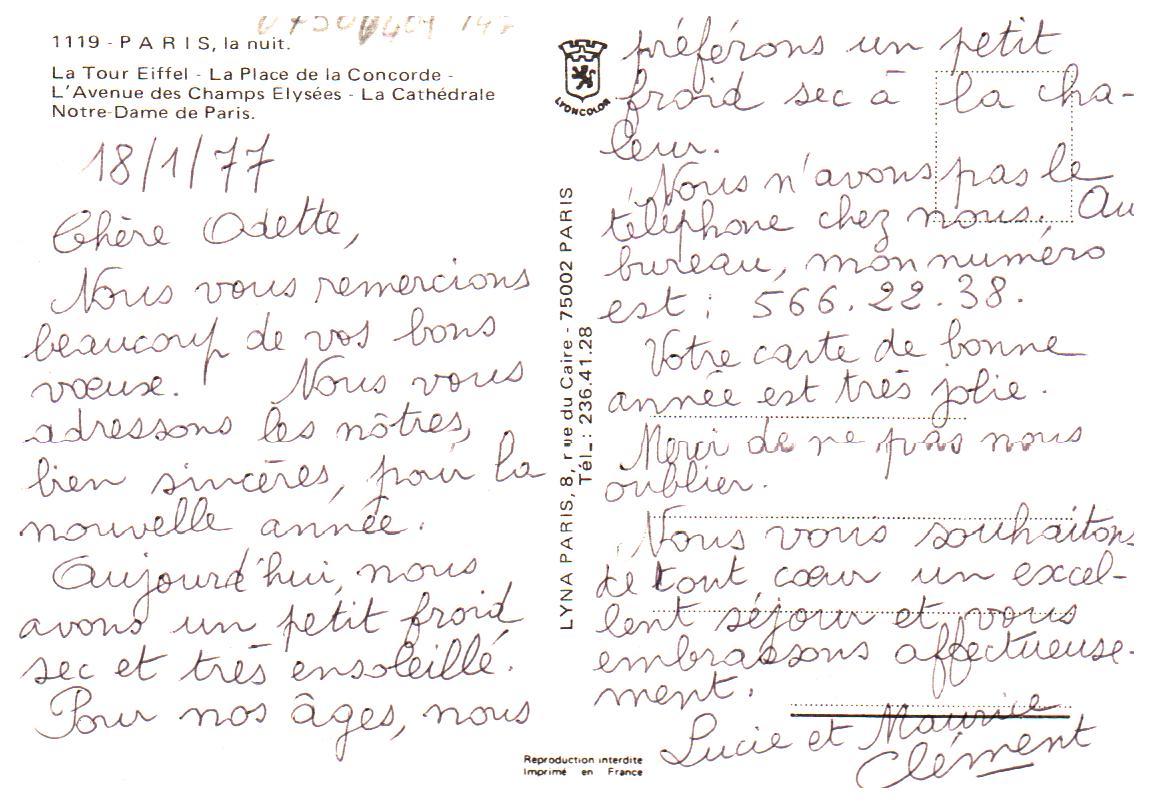 1119 - PARIS, la nuit.
La Tour Eiffel - La Place de la Concorde -
L'Avenue des Champs Elysées - La Cathédrale
Notre-Dame de Paris.
18/1/77
Chère Odette,
Nous vous remercions
beaucoup de vos bons
vœuse. Nous vous
adressons les nôtres,
bien sincères, pour la
nouvelle année.
Aujourd'hui, nous
avons un petit froid
sec et très ensoleillé.
Pour nos âges, nous
LYONCOLOR
LYNA PARIS, 8, rue du Caire - 75002 PARIS
Tél. : 236.41.28
Reproduction interdite
Imprimé en France
préférons un petit
froid sec à la cha-
leur.
Nous n'avons pas le
téléphone chez nous. Au
bureau, mon numéro
est : 566.22.38.
Votre carte de bonne
année est très jolie.
Merci de ne pas nous
oublier.
Nous vous souhaitons
de tout cœur un excel-
lent séjour et vous
embrassons affectueuse-
ment.
Lucie et Maurice
Clément